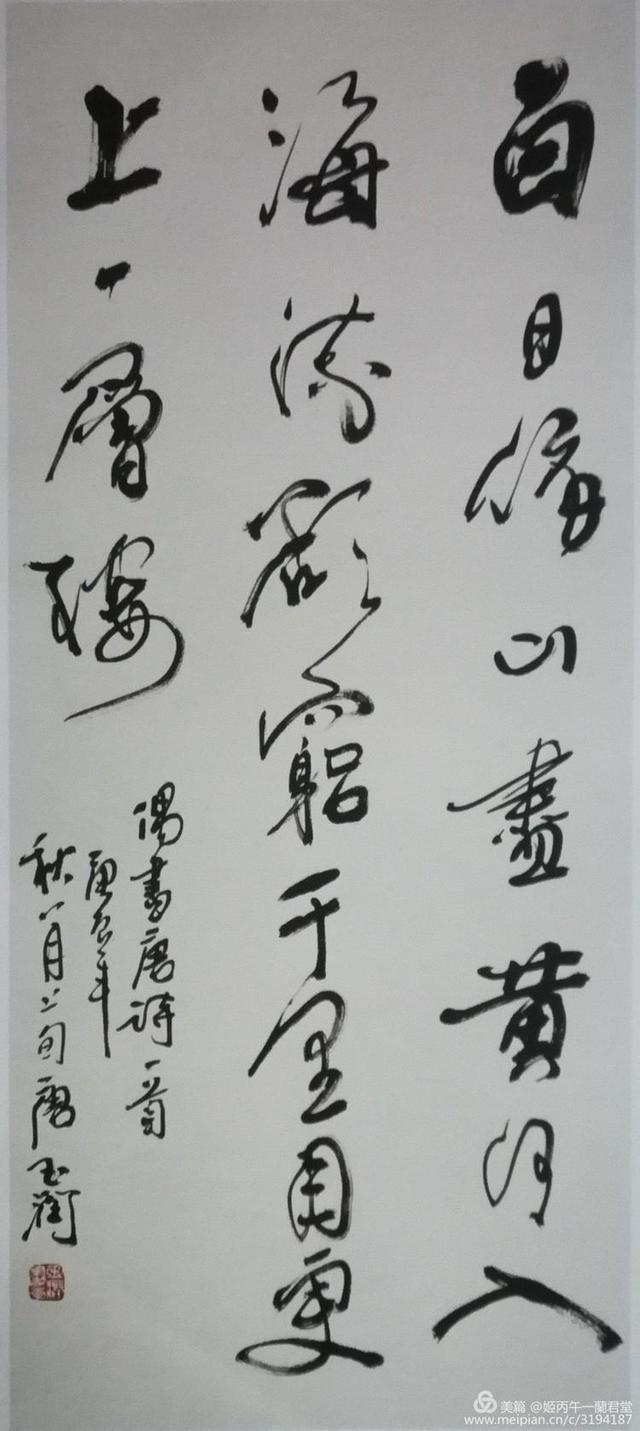 白日依山盡黃河入
海流欲窮千里目更
上一層樓
偶書唐詩一首
庚辰年
秋八月上旬唐玉
美篇 @姬丙午一蘭君堂
www.meipian.cn/c/3194187